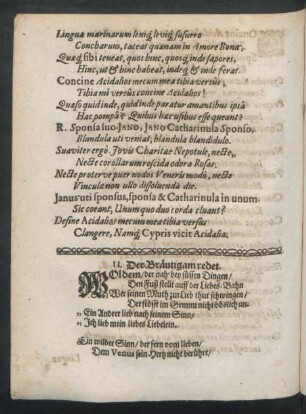 Linguæ marinarum leniq́; leviq́; susurro
Concharum, taceat quænam in Amore Bona,
Quæq́; sibi teneat, quos hinc, quosq́; inde sapores,
Hinc, ut & hinc habeat, indeq́; & inde ferat.
Concine Acidalios mecum mea tibia versus,
Tibia mi versus concine Acidalios!
Quæso quid inde, quid inde paratur amantibus ipsa
Hac pompâ & Quibus hæc usibus esse queant?
R. Sponsa suo JANO, JANO Catharinula Sponso,
Blandula uti veniat, blandula blandidulo.
Suaviter ergò Jovis Charitæ Nepotule, necte,
Necte corollarum roscida odora Rosas.
Necte proterve puer nodos Veneris modò, necte
Vincula non ullo dissoluenda die.
Janus uti sponsus, sponsa & Catharinula in unum
Sic coeant, Unum quo duo corda cluant?
Desine Acidalios mecum mea tibia versus
Clangere, Namq́; Cypris vicit Acidalia.
II. Der Bräutigam redet.
WOldem / der nah bey süssen Dingen /
Den Fuß stellt auff der Liebes-Bahn
Wer seinen Muth zur Lieb thut schwingen /
Der sihst im Grimm nicht höhlich an.
„ Ein Andrer lieb nach seinem Sinn /
„ Ich lieb mein liebes Liebelein.
Ein wilder Sinn / der fern vom lieben /
Dem Venus sein Hertz nicht berühret /